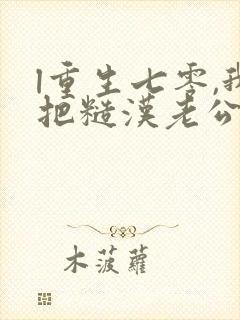 |重生七零,我
把糙漢老公
木菠蘿